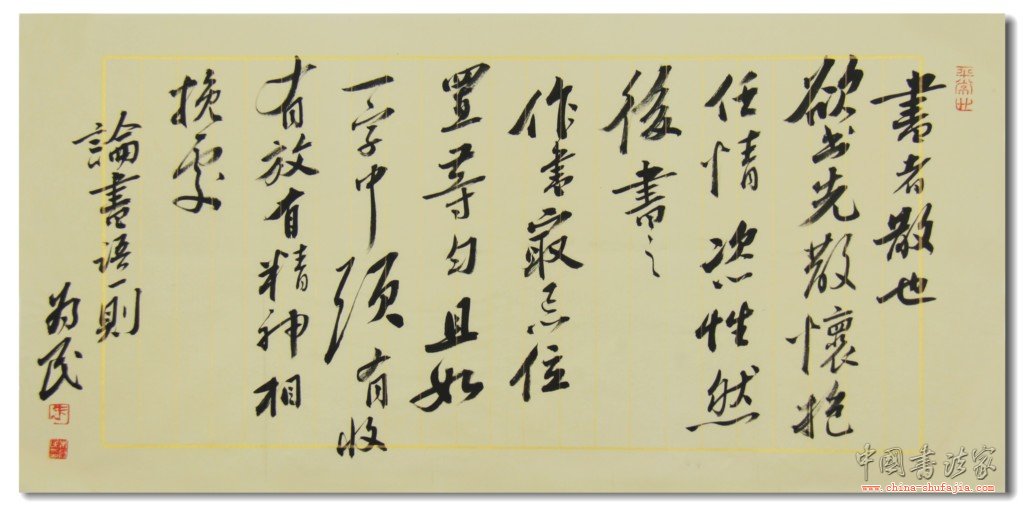 書者散也
欲書先散懷抱
任情恣性然
後書之
作書最忌位
置等勻且如
一字中須有收
有放有精神相
挽處
論書語一則
為民
平常心
中國書法家
www.china-shufajia.com